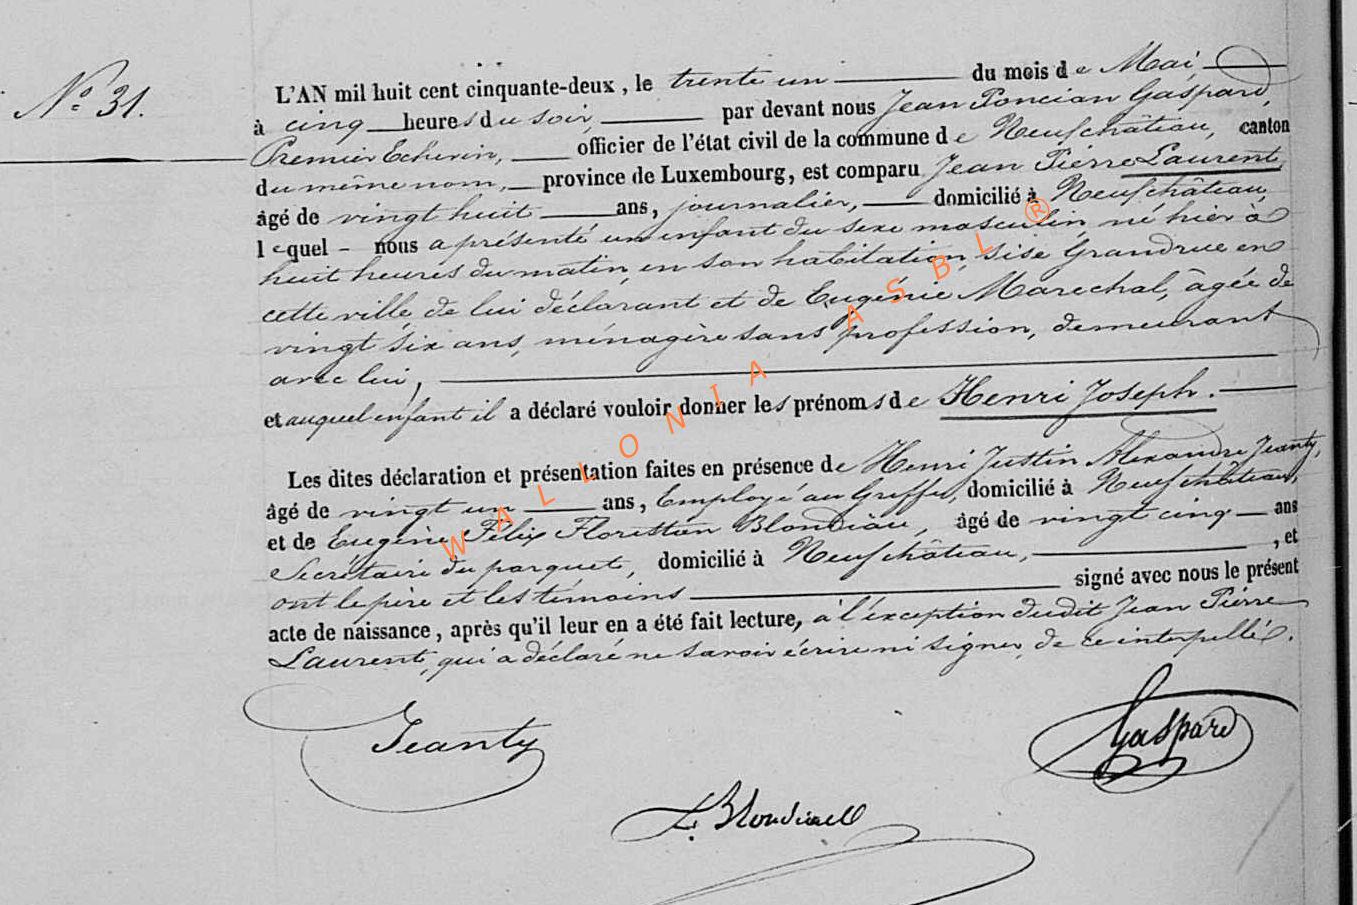 N° 31.
L'AN mil huit cent cinquante-deux, le trente un du mois de Mai,
à cinq heures du soir, par devant nous Jean Poncian Gaspard,
Premier Echevin, officier de l'état civil de la commune de Neufchâteau, canton
du même nom, province de Luxembourg, est comparu Jean Pierre Laurent,
âgé de vingt huit ans, journalier, domicilié à Neufchâteau,
lequel - nous a présenté un enfant du sexe masculin né hier à
huit heures du matin, en son habitation, sise Grandrue en
cette ville, de lui déclarant et de Eugénie Marechal, âgée de
vingt six ans, ménagère sans profession, demeurant
avec lui,
et auquel enfant il a déclaré vouloir donner les prénoms de Henri Joseph.
Les dites déclaration et présentation faites en présence de Henri Justin Alexandre Jeanty,
âgé de vingt un ans, Employé au Greffe, domicilié à Neufchâteau,
et de Eugène Félix Floristan Blondiau, âgé de vingt cinq ans
Secrétaire du parquet, domicilié à Neufchâteau, , et
ont le père et les témoins signé avec nous le présent
acte de naissance, après qu'il leur en a été fait lecture, à l'exception dudit Jean Pierre
Laurent, qui a déclaré ne savoir écrire ni signer, de ce interpellé.
Jeanty
Gaspard
Blondiau
WALLONIA ASBL ®